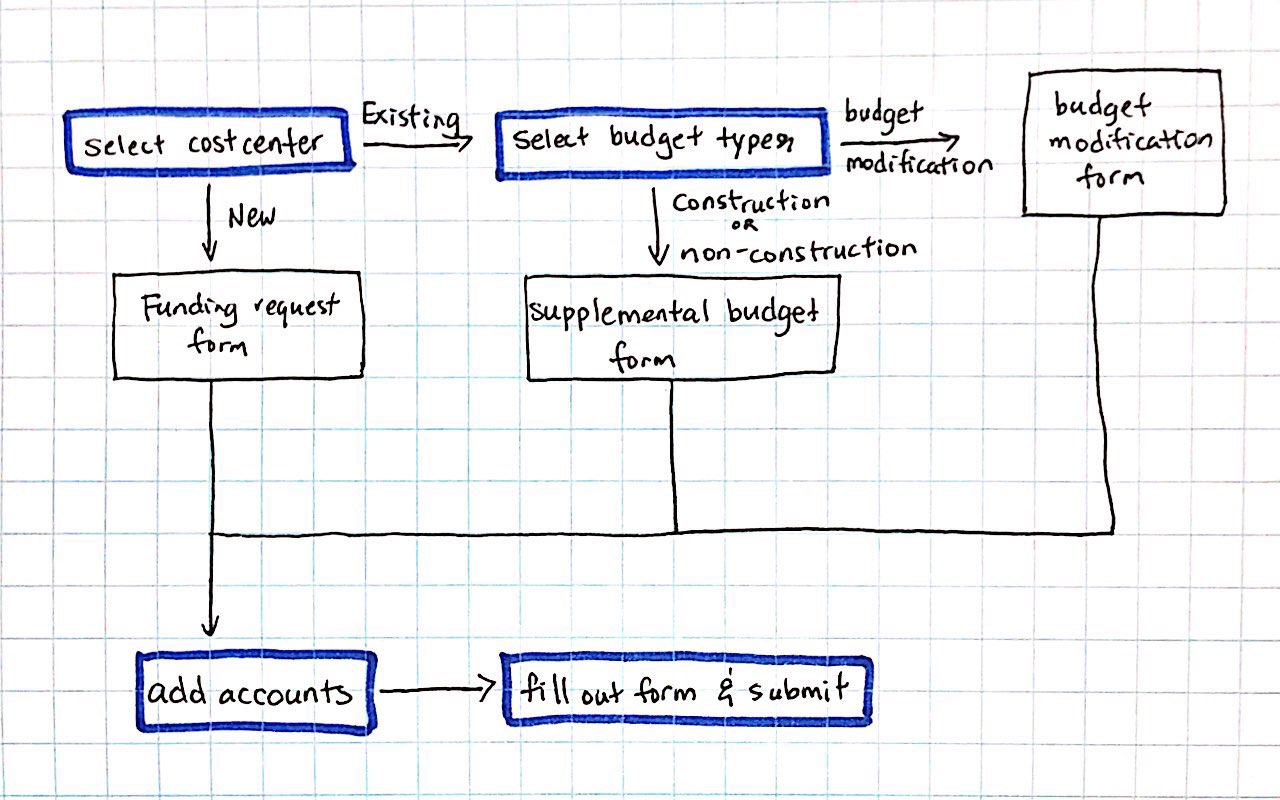 select cost center
Existing
select budget types
budget
modification
budget
modification
form
New
construction
OR
non-construction
Funding request
form
supplemental budget
form
add accounts
fill out form & submit